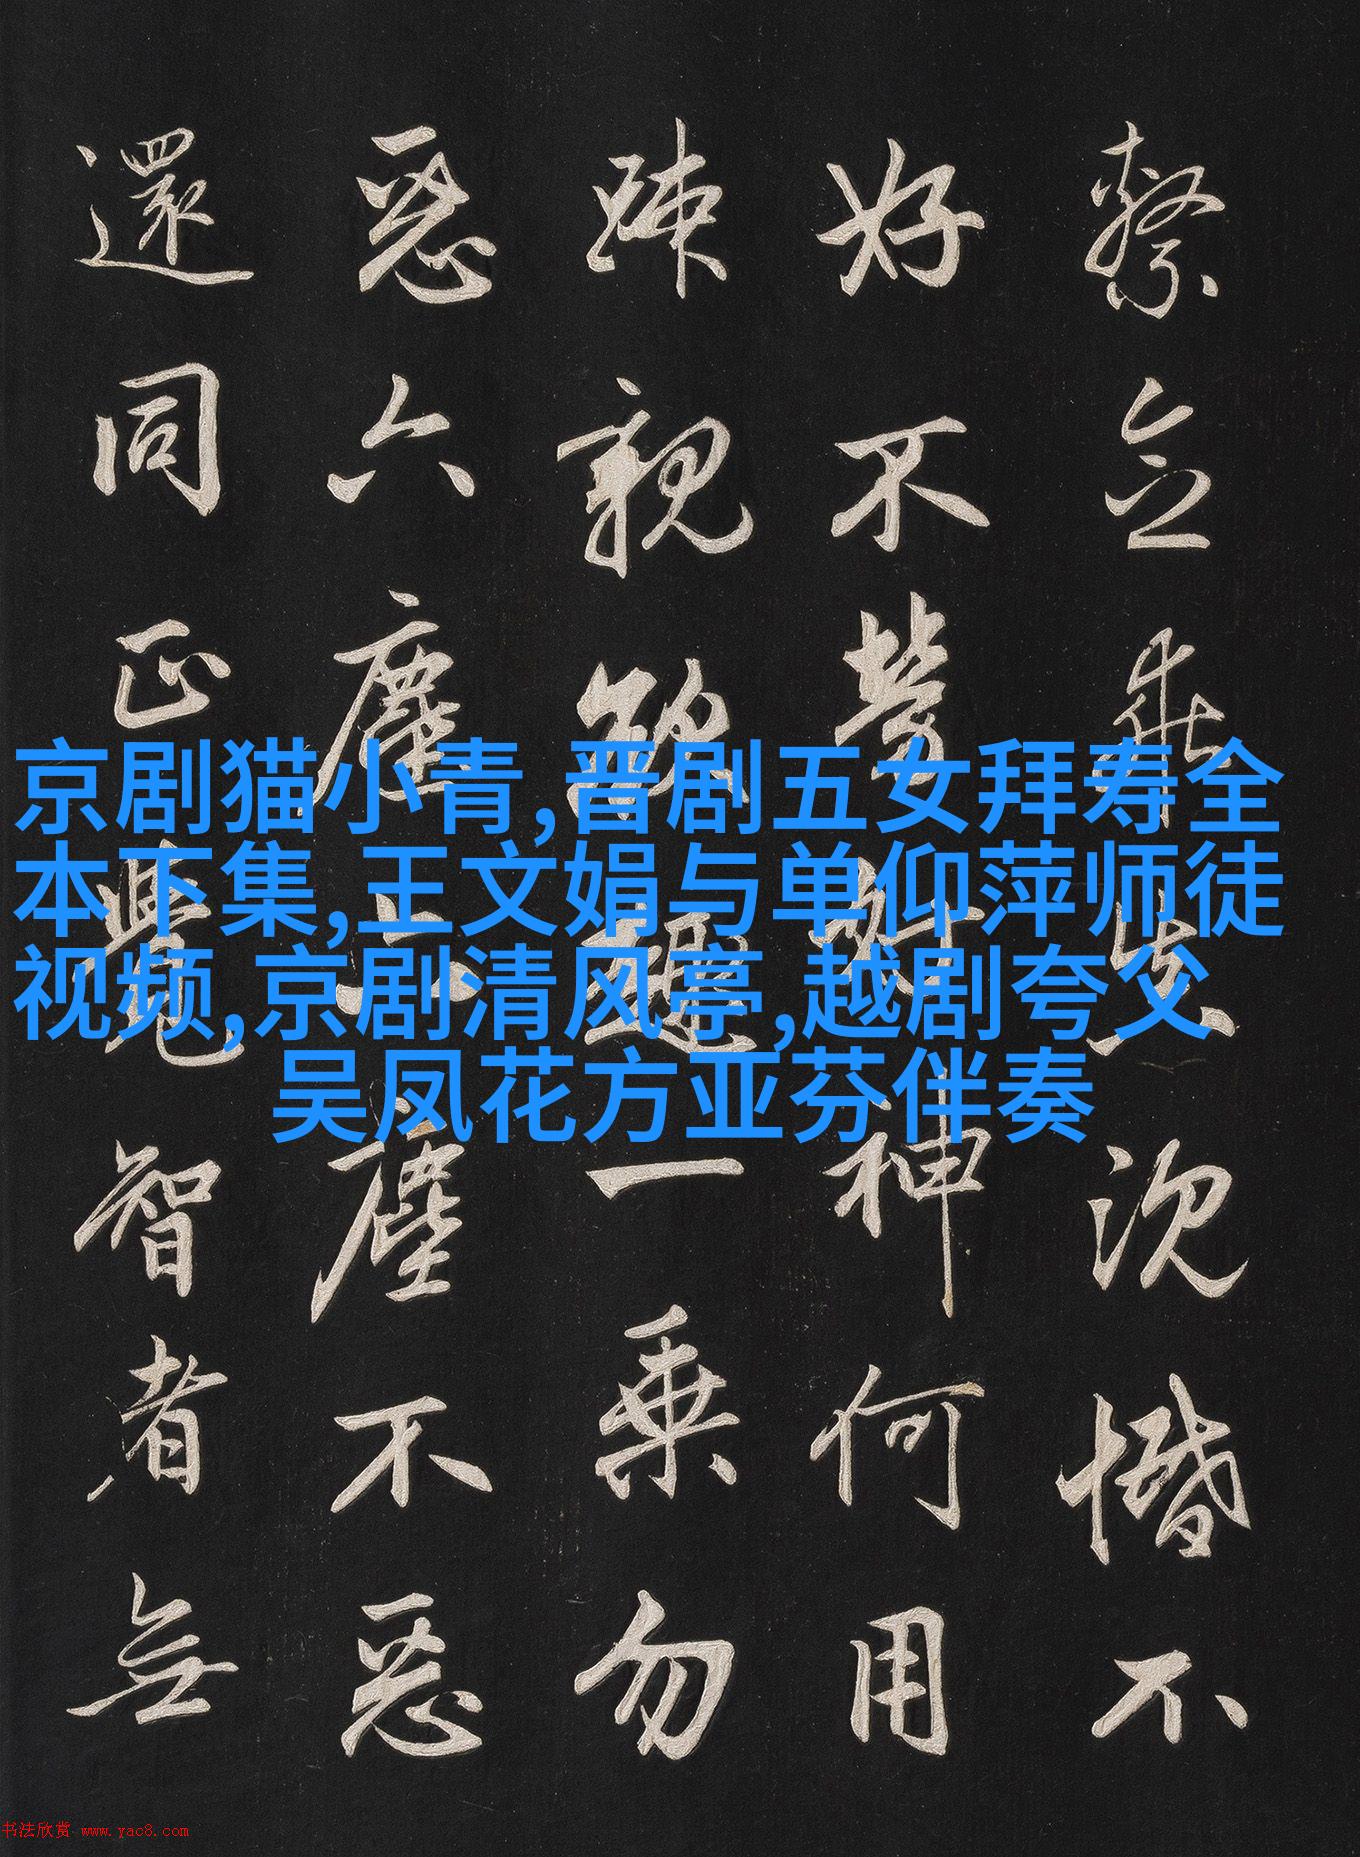 繫念乖真沉惛不
好不勞好神何用
疎親欲趣一乗勿
惡六塵六塵不惡
還同正覺智者無
京剧猫小青,晋剧五女拜寿全
本下集,王文娟与单仰萍师徒
视频,京剧清风亭,越剧夸父
吴凤花方亚芬伴奏
书法欣赏 www.yac8.com